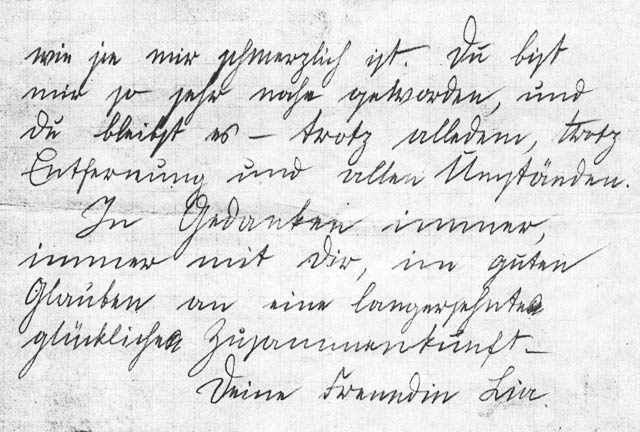 wie sie mir schmerzlich ist. Du bist
mir so sehr nahe geworden, und
du bleibst es – trotz alledem, trotz
Entfernung und allen Umständen.
In Gedanken immer,
immer mit Dir, im guten
Glauben an eine langersehnte
glückliche Zusammenkunft –
Deine Freundin Lia.